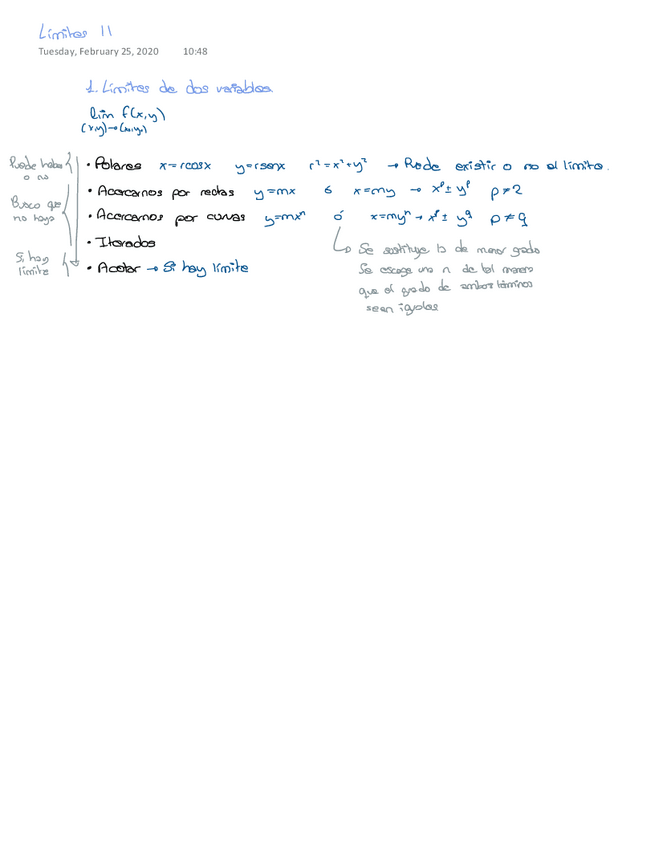 Límites II
Tuesday, February 25, 2020 10:48
1. Límites de dos variables
lim f(x,y)
(x,y)→(x₀,y₀)
Puede haber o no
• Polares x=rcosx y=rsenx r²=x²+y² → Puede existir o no el límite.
Busco que no haya
• Acercarnos por rectas y=mx ó x=my → xᵖ ± yᵖ p≠2
• Acercarnos por curvas y=mxⁿ ó x=myⁿ → xᵖ ± y^q p≠q
↳ Se sustituye la de menor grado
Se escoge una n de tal manera
que el grado de ambos términos
sean iguales
• Iterados
Si hay límite
• Acotar → Si hay límite